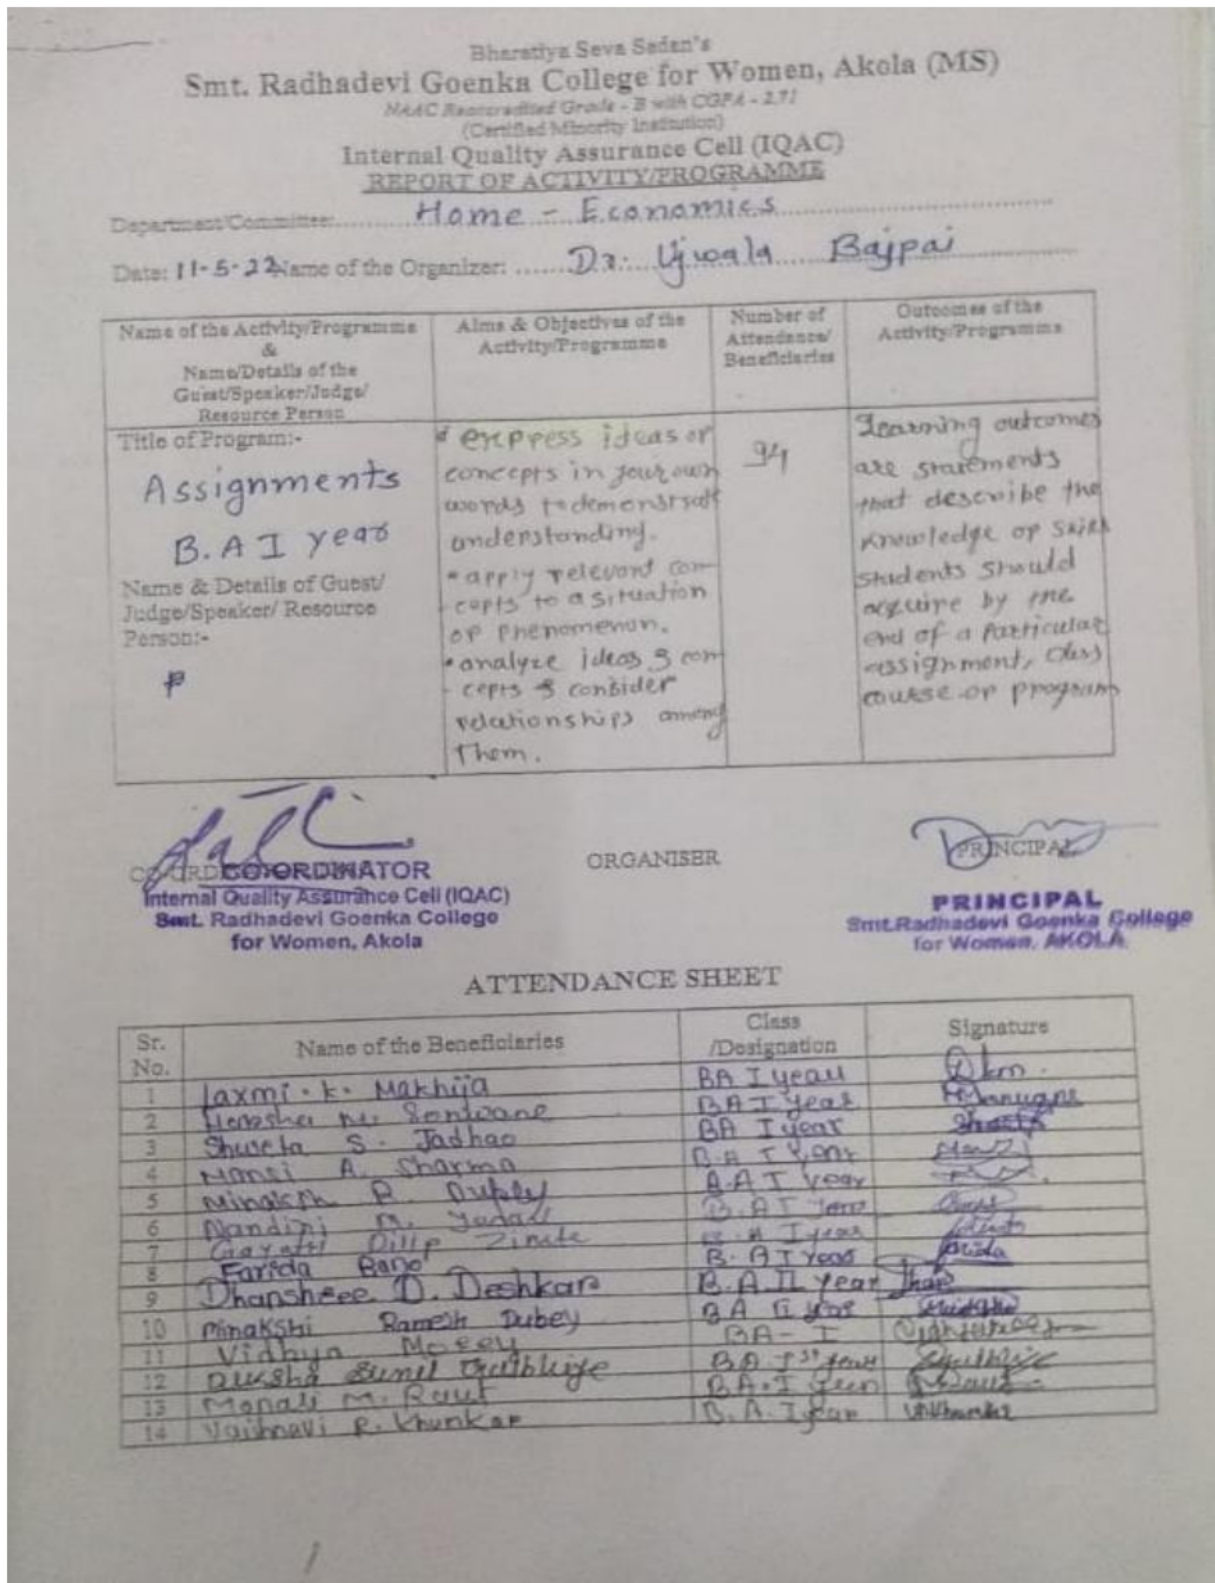 Bharatiya Seva Sadan's
Smt. Radhadevi Goenka College for Women, Akola (MS)
NAAC Reaccredited Grade - B with CGPA - 2.71
(Certified Minority Institution)
Internal Quality Assurance Cell (IQAC)
REPORT OF ACTIVITY/PROGRAMME
Department/Committee: Home - Economics
Date: 11-5-22 Name of the Organizer: Dr. Ujwala Bajpai
Name of the Activity/Programme
&
Name/Details of the
Guest/Speaker/Judge/
Resource Person
Aims & Objectives of the
Activity/Programme
Number of
Attendance/
Beneficiaries
Outcomes of the
Activity/Programme
Title of Program:-
Assignments
B.A I year
Name & Details of Guest/
Judge/Speaker/ Resource
Person:-
express ideas or
concepts in your own
words to demonstrate
understanding.
• apply relevant con-
cepts to a situation
or phenomenon.
• analyze ideas & con
- cepts & consider
relationships among
Them.
94
Learning outcomes
are statements
that describe the
knowledge or skills
students should
acquire by the
end of a particular
assignment, class
course or program
CO-ORDINATOR
Internal Quality Assurance Cell (IQAC)
Smt. Radhadevi Goenka College
for Women, Akola
ORGANISER
PRINCIPAL
PRINCIPAL
Smt.Radhadevi Goenka College
for Women, AKOLA.
ATTENDANCE SHEET
Sr. No. Name of the Beneficiaries Class /Designation Signature
1 Laxmi . K. Makhija BA I year
2 Sontwane BA I year
3 Shweta S. Jadhao BA I year
4 Mansi A. Sharma B.A I year
5 Minakshi R. Dubey B.A I year
6 Nandini M. Yadav B.A I year
7 Gayatri Dilip Zinte B.A I year
8 Farida Bano B.A I year Farida
9 Dhanshree D. Deshkar B.A II year
10 Minakshi Ramesh Dubey BA II year
11 Vidhya Morey BA - I
12 Diksha Sunil BA Ist year
13 Monali M. Raut BA.I year
14 Vaishnavi R. Khunkar B.A. I year